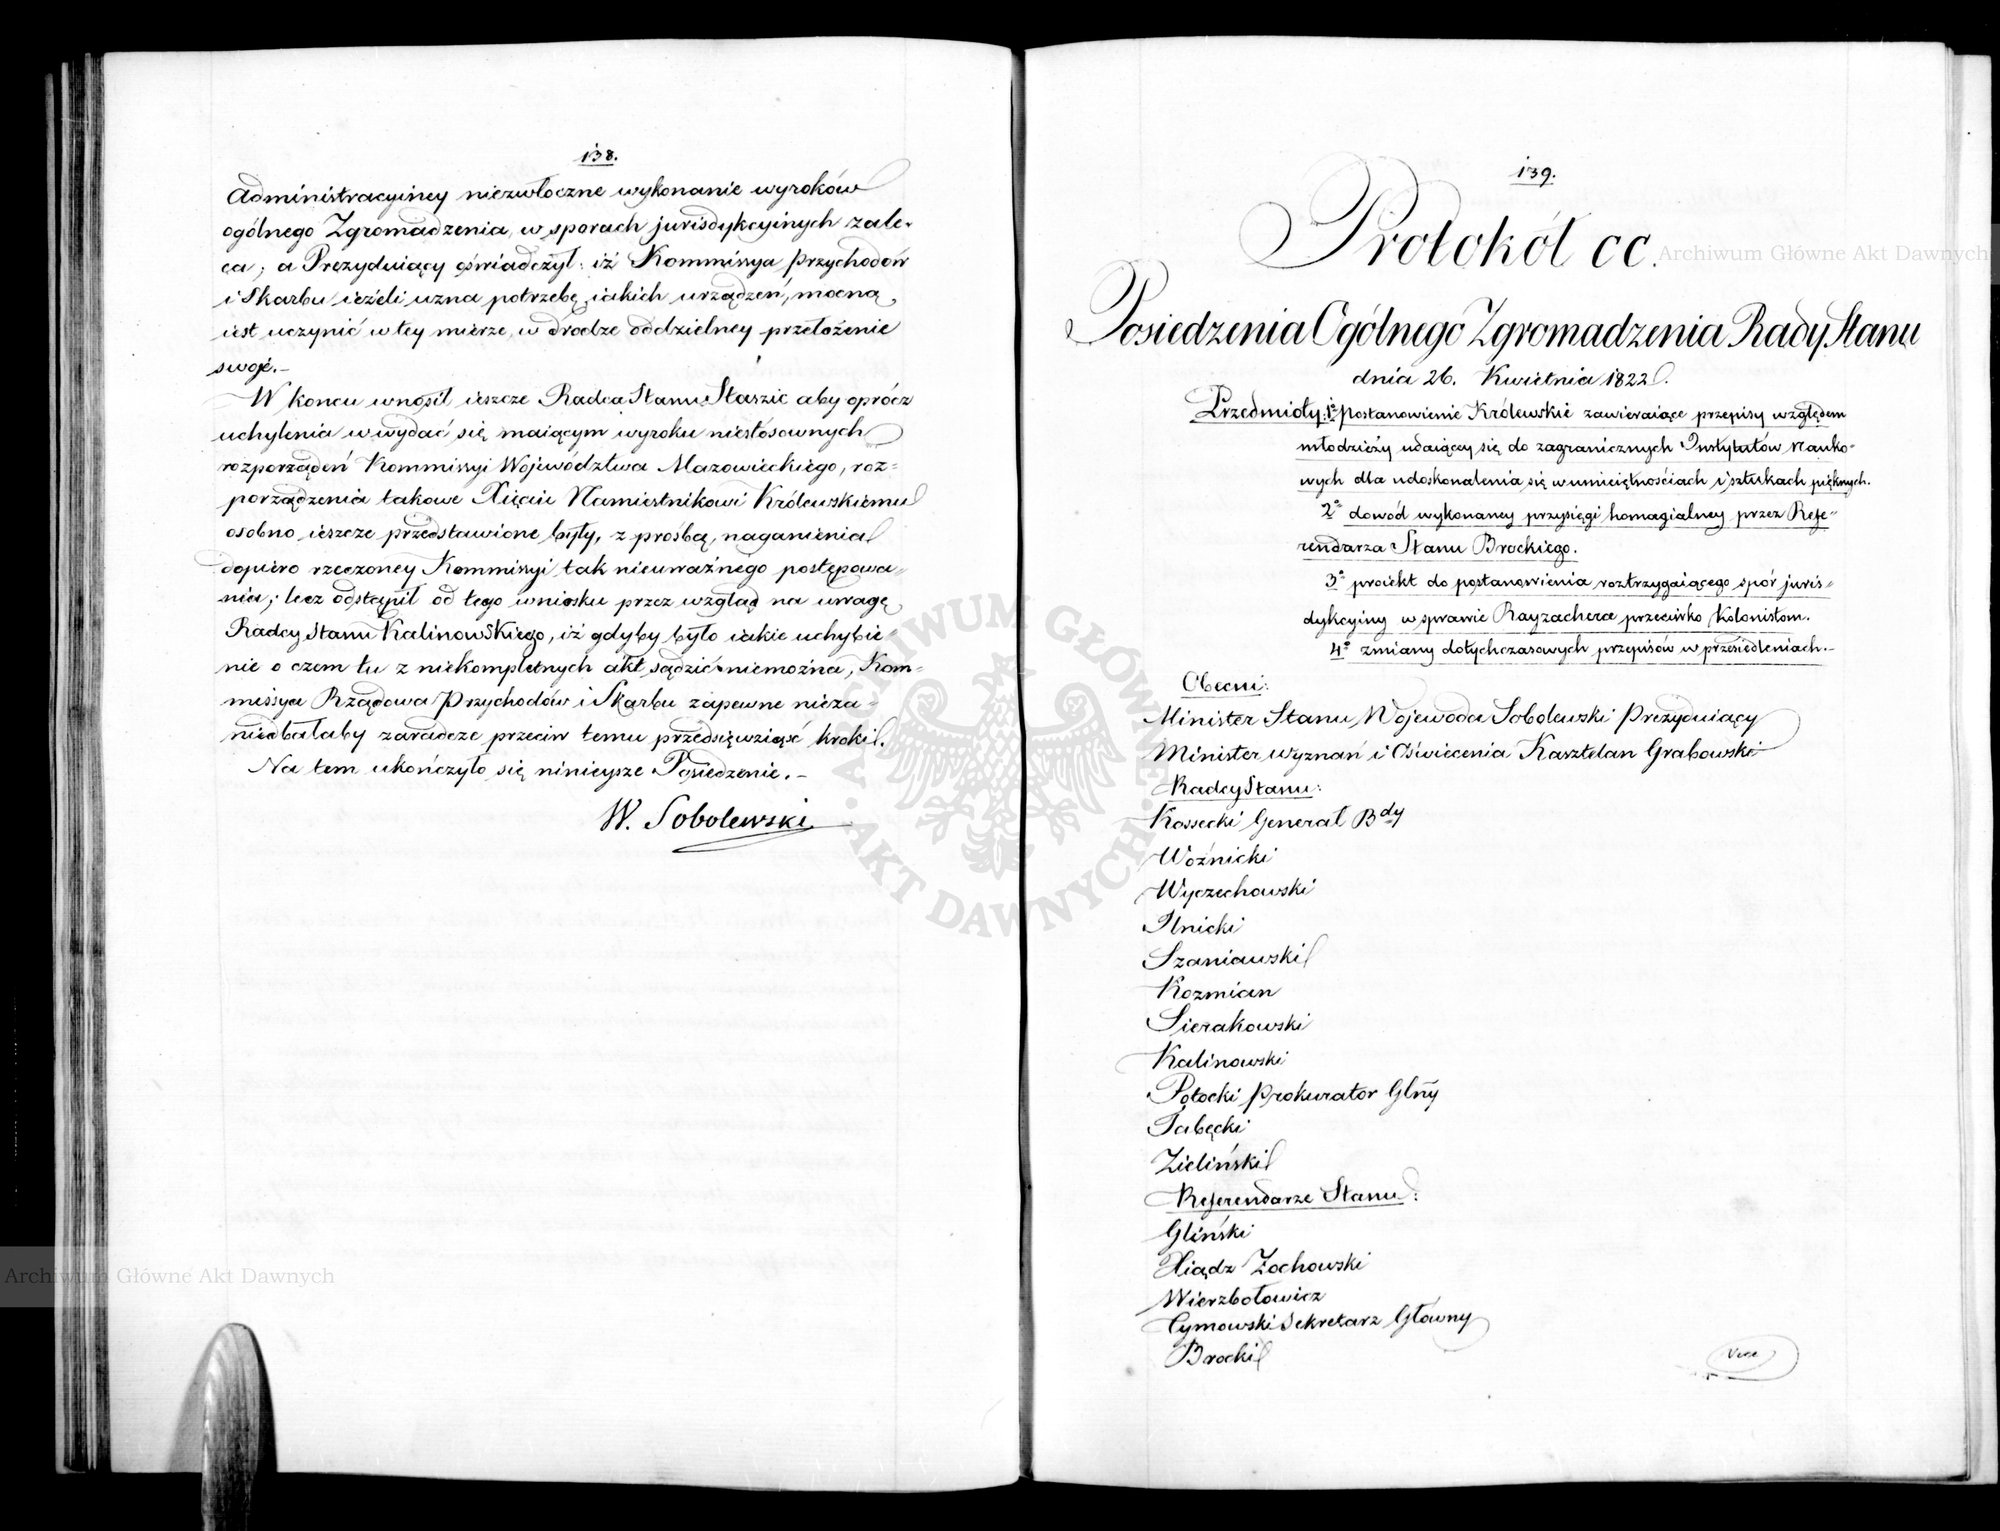 138.
Administracyiney niezwłoczne wykonanie wyroków
ogólnego Zgromadzenia, w sporach jurisdykcyinych zale-
ca; a Prezyduiący oświadczył: iż Kommissya Przychodów
i Skarbu ieżeli uzna potrzebę iakich urządzeń, mocną
iest uczynić w tey mierze, w drodze oddzielney przełożenie
swoje.-
W koncu wnosił ieszcze Radca Stanu Staszic aby oprócz
uchylenia w wydać się maiącym wyroku niestósownych
rozporządzeń Kommissyi Województwa Mazowieckiego, roz-
porządzenia takowe Xięciu Namiestnikowi Królewskiemu
osobno ieszcze przedstawione były, z prośbą, naganienia
dopiero rzeczoney Kommissyi tak nieuważnego postępowa-
nia; lecz odstąpił od tego wniosku przez wzgląd na uwagę
Radcy Stanu Kalinowskiego, iż gdyby było iakie uchybie-
nie o czem tu z niekompletnych akt sądzić niemożna, Kom-
missya Rządowa Przychodów i Skarbu zapewne nieza-
niedbałaby zaradcze przeciw temu przedsięwziąść kroki.
Na tem ukończyło się ninieysze Posiedzenie.-
W. Sobolewski
139.
Protokół CC.
Posiedzenia Ogólnego Zgromadzenia Rady Stanu
dnia 26. Kwietnia 1822.
Przedmioty: 1º postanowienie Królewskie zawieraiące przepisy względem
młodzieży udaiącey się do zagranicznych Instytutów Nauko-
wych dla udoskonalenia się w umieiętnościach i sztukach pięknych.
2º dowód wykonaney przysięgi homagialney przez Refe-
rendarza Stanu Brockiego.
3º proiekt do postanowienia roztrzygaiącego spór juris-
dykcyiny w sprawie Rayzachera przeciwko Kolonistom.
4º zmiany dotychczasowych przepisów w przesiedleniach.-
Obecni:
Minister Stanu Wojewoda Sobolewski Prezyduiący
Minister Wyznań i Oświecenia Kasztelan Grabowski
Radcy Stanu:
Kossecki Generał Bdy
Woźnicki
Wyczechowski
Ilnicki
Szaniawski
Kozmian
Sierakowski
Kalinowski
Potocki Prokurator Glny
Tabęcki
Zieliński
Referendarze Stanu:
Gliński
Xiądz Zochowski
Wierzbołowicz
Tymowski Sekretarz Główny
Brocki
Archiwum Główne Akt Dawnych
Archiwum Główne Akt Dawnych
ARCHIWUM GŁÓWNE AKT DAWNYCH